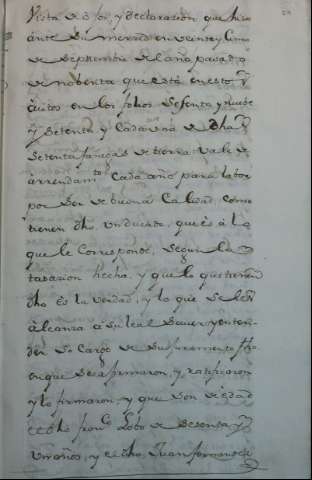 Vista de ojos, y declarazion que hizo
ante su merced en veinte y cinco
de Septiembre del año pasado
de nobenta que está en estos
autos en los folios sesenta y nuebe
y setenta y cada una de dhas
setenta fanegas de tierra vale de
arrendamto cada año para labor
por ser de buena calidad como
tienen dho. un ducado, que es à lo
que le corresponde, segun la
tasazion hecha, y que lo que tienen
dho es la verdad, y lo que se les
alcanza a su leal saver y enten-
der so cargo de su juramento fho
en que se afirmaron, y ratificaron
y lo firmaron, y que son de edad
el dho franco Lobo de sesenta y
un años, y el dho Juan fernandez